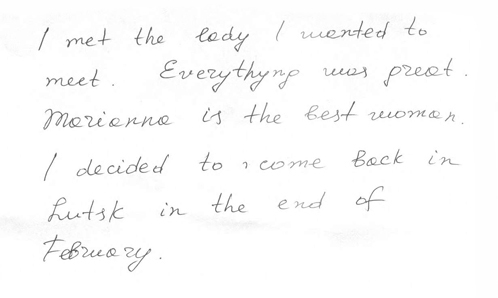 I met the lady I wanted to
meet. Everythyng was great.
Marianna is the best woman.
I decided to come back in
Lutsk in the end of
February.